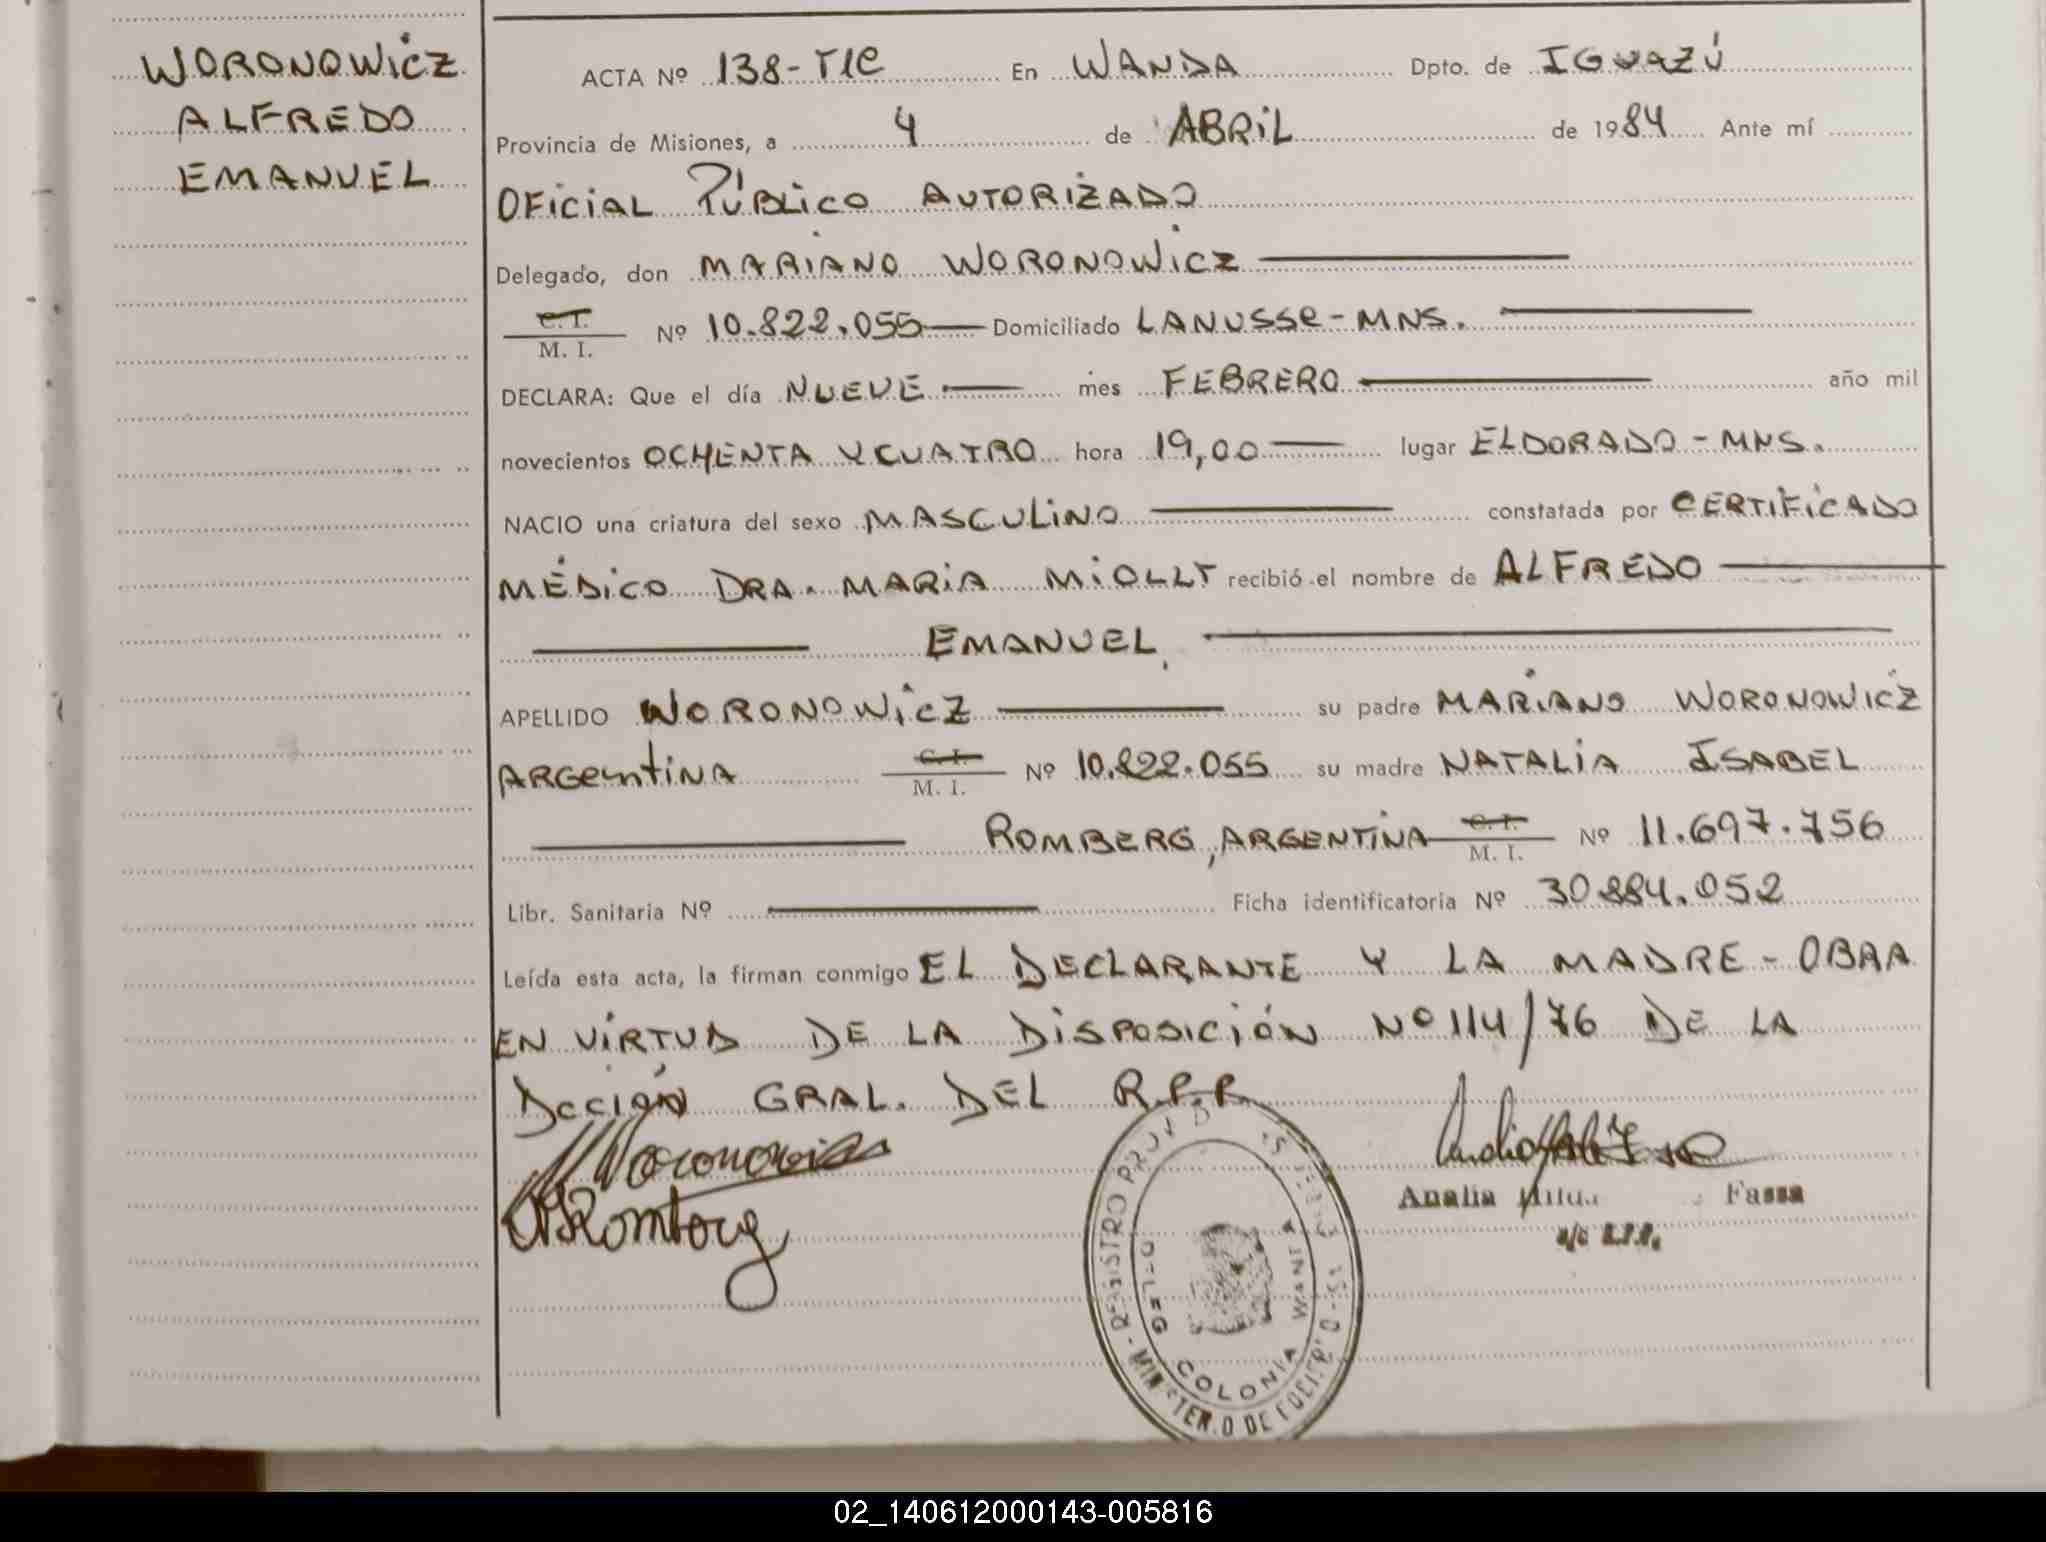 WORONOWICZ
ALFREDO
EMANUEL
ACTA Nº 138-TIC En WANDA Dpto. de IGUAZÚ
Provincia de Misiones, a 4 de ABRIL de 1984 Ante mí
OFICIAL PÚBLICO AUTORIZADO
Delegado, don MARIANO WORONOWICZ
C. I.
M. I. Nº 10.822.055 Domiciliado LANUSSE-MNS.
DECLARA: Que el día NUEVE mes FEBRERO año mil
novecientos OCHENTA Y CUATRO hora 19,00 lugar ELDORADO-MNS.
NACIO una criatura del sexo MASCULINO constatada por CERTIFICADO
MÉDICO DRA. MARIA MIOLLT recibió el nombre de ALFREDO
EMANUEL
APELLIDO WORONOWICZ su padre MARIANO WORONOWICZ
ARGENTINA C. I. M. I. Nº 10.822.055 su madre NATALIA ISABEL
ROMBERG, ARGENTINA C. I. M. I. Nº 11.697.756
Libr. Sanitaria Nº Ficha identificatoria Nº 30884.052
Leída esta acta, la firman conmigo EL DECLARANTE Y LA MADRE - OBRA
EN VIRTUD DE LA DISPOSICIÓN Nº 114/76 DE LA
DCCIÓN GRAL. DEL R.P.P.
M Woronowicz
Romberg
REGISTRO PROV
DELEG
COLONIA WANDA
MINISTERIO DE
Analia Fassa
a/c R.P.P.
02_140612000143-005816